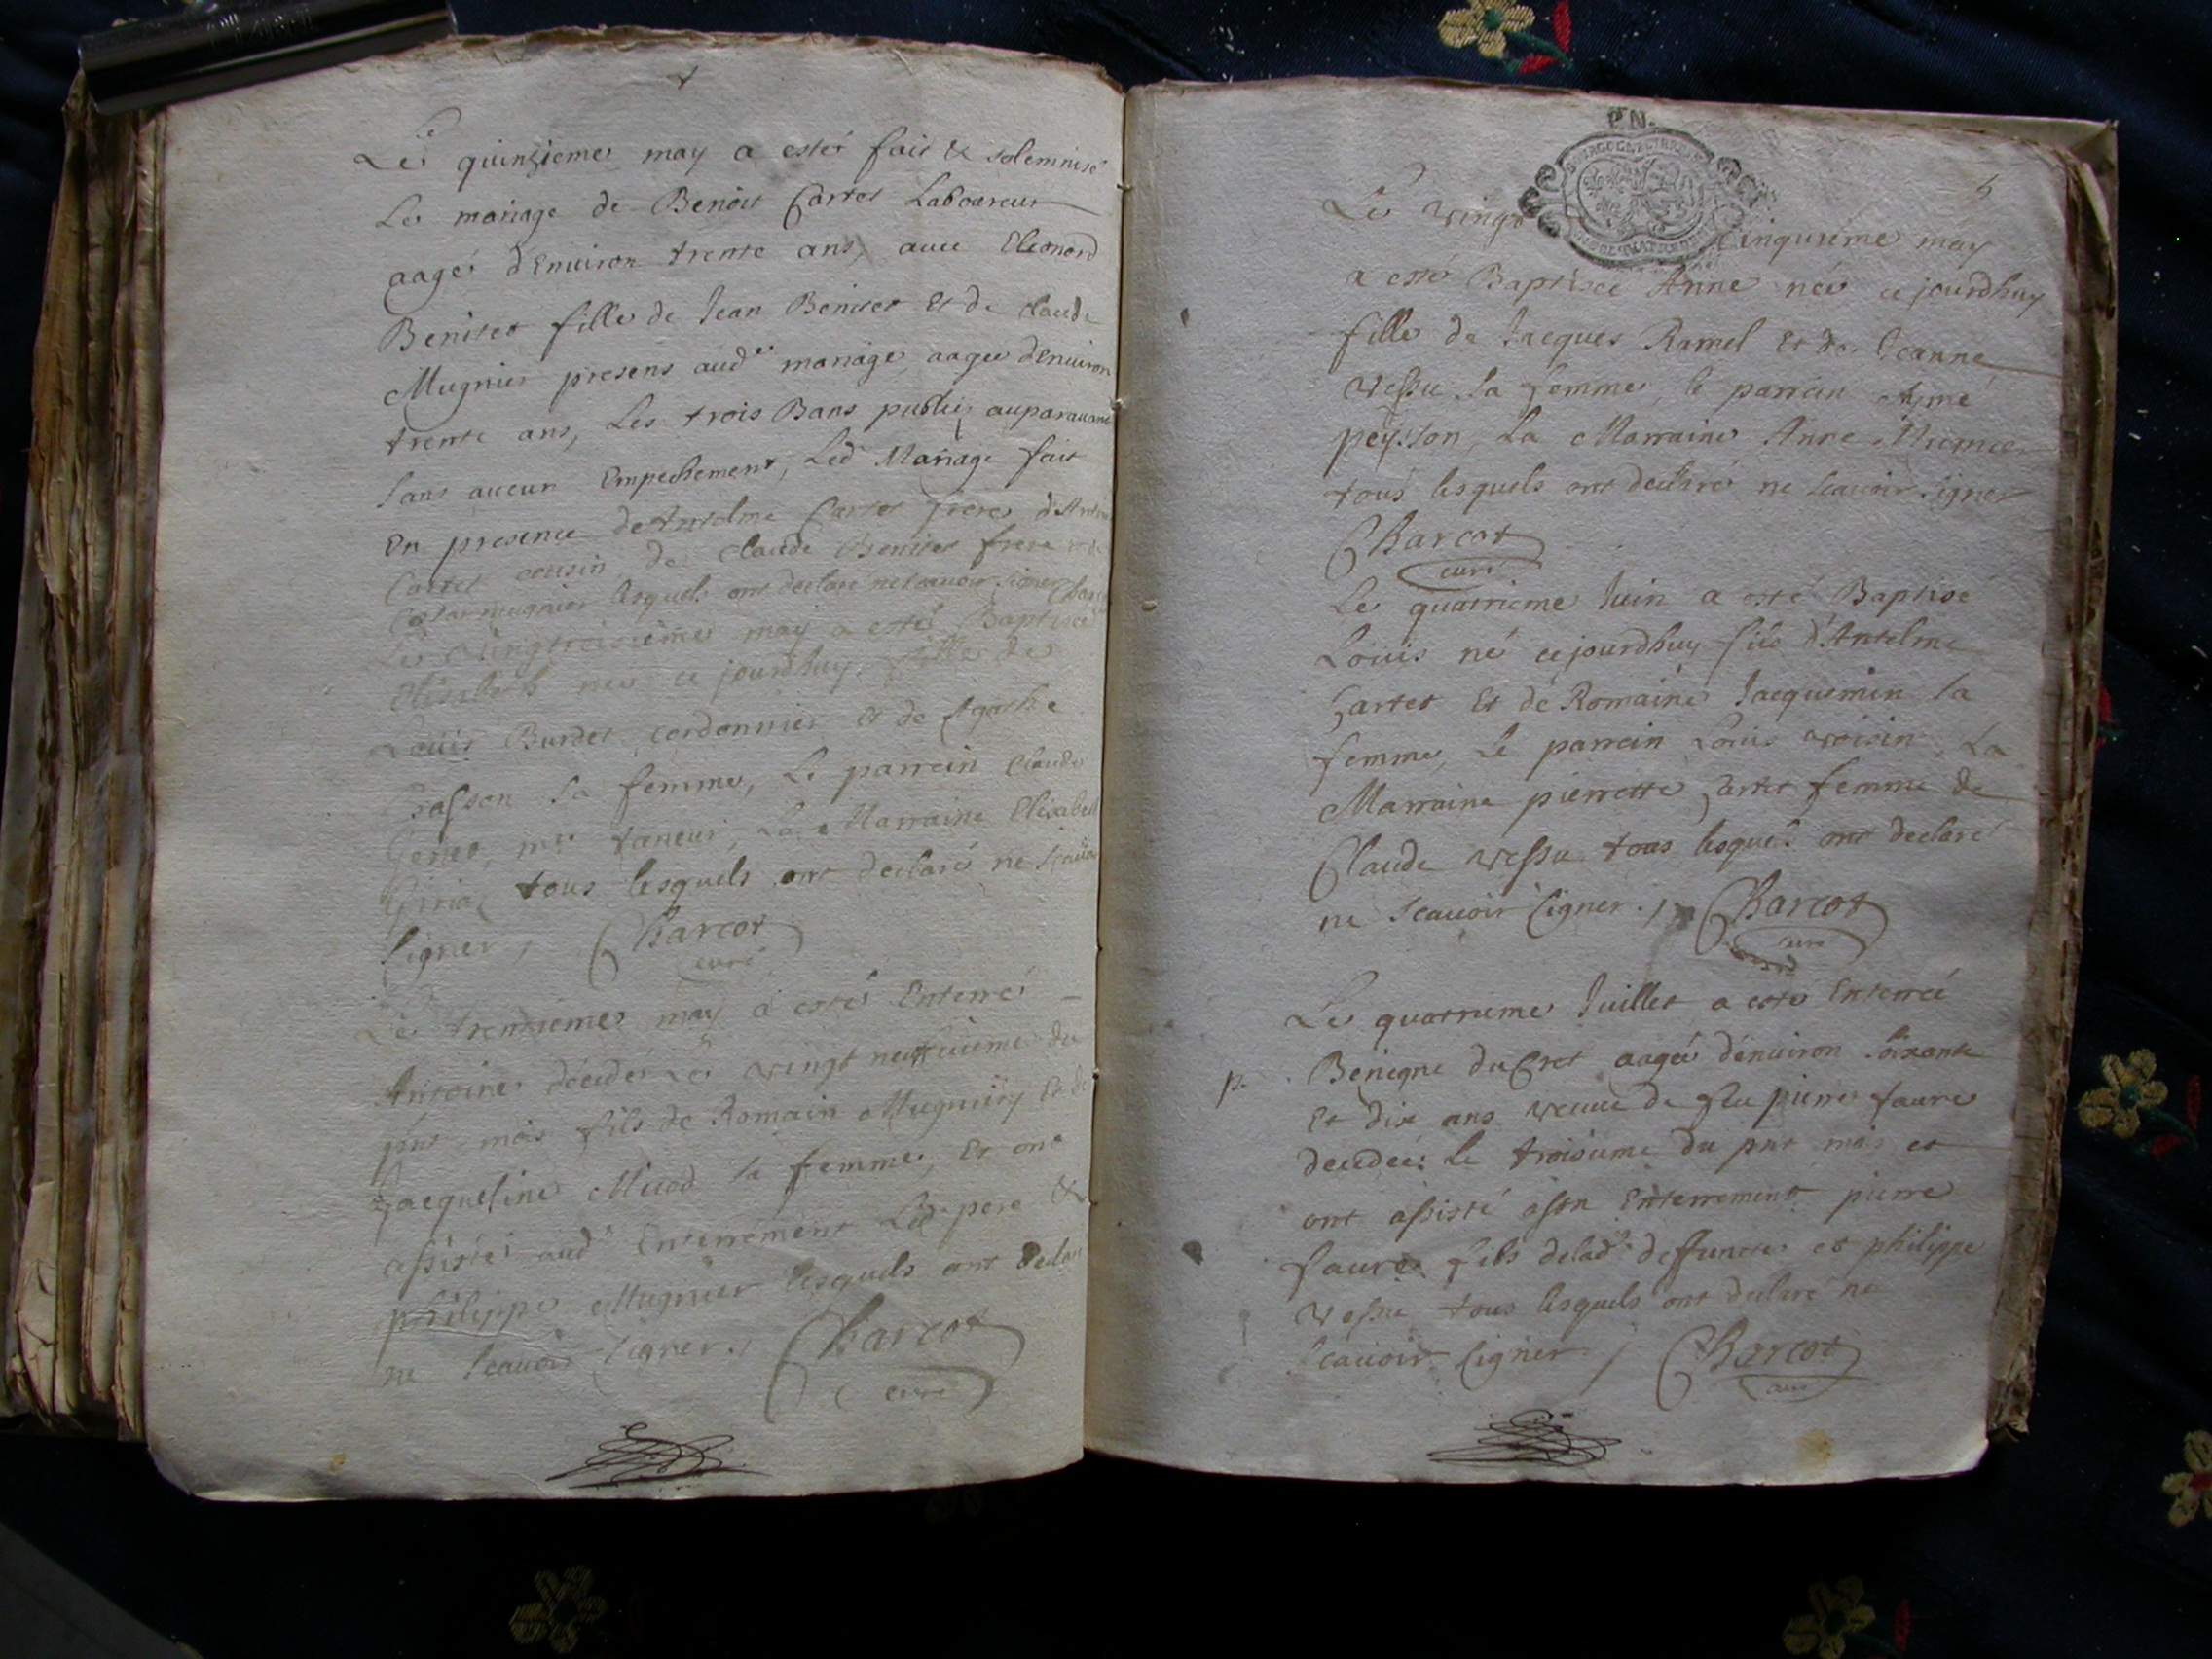 Le quinzieme may a esté fait & solemnisé
Le mariage de Benoit Cartet Laboureur
aagé d'Enuiron trente ans, auec Eleonord
Benitet fille de Jean Benitet et de claude
Mugnier presens aud mariage, aagee d'Enuiron
trente ans, Les trois Bans publiez auparauant
sans aucun Empechement, Led Mariage fait
En presence de Antelme Cartet frere
Cartet cousin de claude Benitet frere
mugnier lesquels ont declaré ne scauoir signer
Le vingtroisieme may a esté Baptisée
Elisabeth née ce jourdhuy fille de
Louis Burdet cordonnier et de Agathe
sa femme, Le parrein Claude
Genet, mre taneur, La Marraine Elisabeth
tous lesquels ont declaré ne scauoir
signer, Charcot
curé
Le trentieme may a esté Enterré
Antoine décédé Le vingt neufuieme du
pnt mois fils de Romain Mugnier Et de
Jacqueline sa femme, Et ont
assisté aud Enterrement Led pere &
philippe Mugnier lesquels ont declaré
ne scauoir signer. Charcot
curé
P.N.
5
Le vingt cinquieme may
a esté Baptisée Anne née ce jourdhuy
fille de Jacques Ramel et de Jeanne
Vessu sa femme, le parrein Aymé
peysson, La Marraine Anne
tous lesquels ont declaré ne scauoir signer
Charcot
curé
Le quatrieme Juin a esté Baptisé
Louis né ce jourdhuy fils d'Antelme
Cartet Et de Romaine Jacquemin sa
femme, Le parrein Louis voisin, La
Marraine pierrette Cartet femme de
Claude Vessu tous lesquels ont declaré
ne scauoir signer. Charcot
curé
Le quatrieme Juillet a esté Enterrée
p. Benigne duCret aagée d'enuiron soixante
Et dix ans veuue de feu pierre faure
decedée le troisieme du pnt mois et
ont assisté a son Enterrement pierre
faure fils de lad deffuncte et philippe
Vessu tous lesquels ont declaré ne
scauoir signer / Charcot
curé